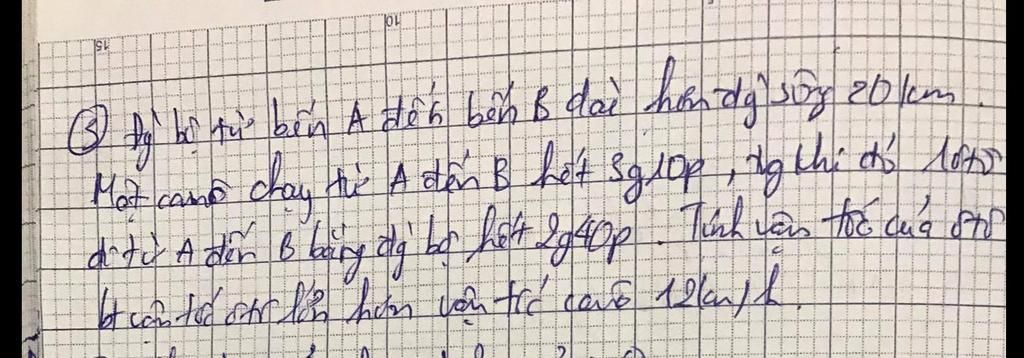 10
15
③ đg bộ từ bến A đến bến B dài hơn đg sông 20km.
Một canô chạy từ A đến B hết 3g10p, tg khi đó 1 ôtô
đi từ A đến B bằng đg bộ hết 2g40p. Tính vận tốc của ôtô
bt vận tốc ôtô lớn hơn vận tốc canô 12km/h.